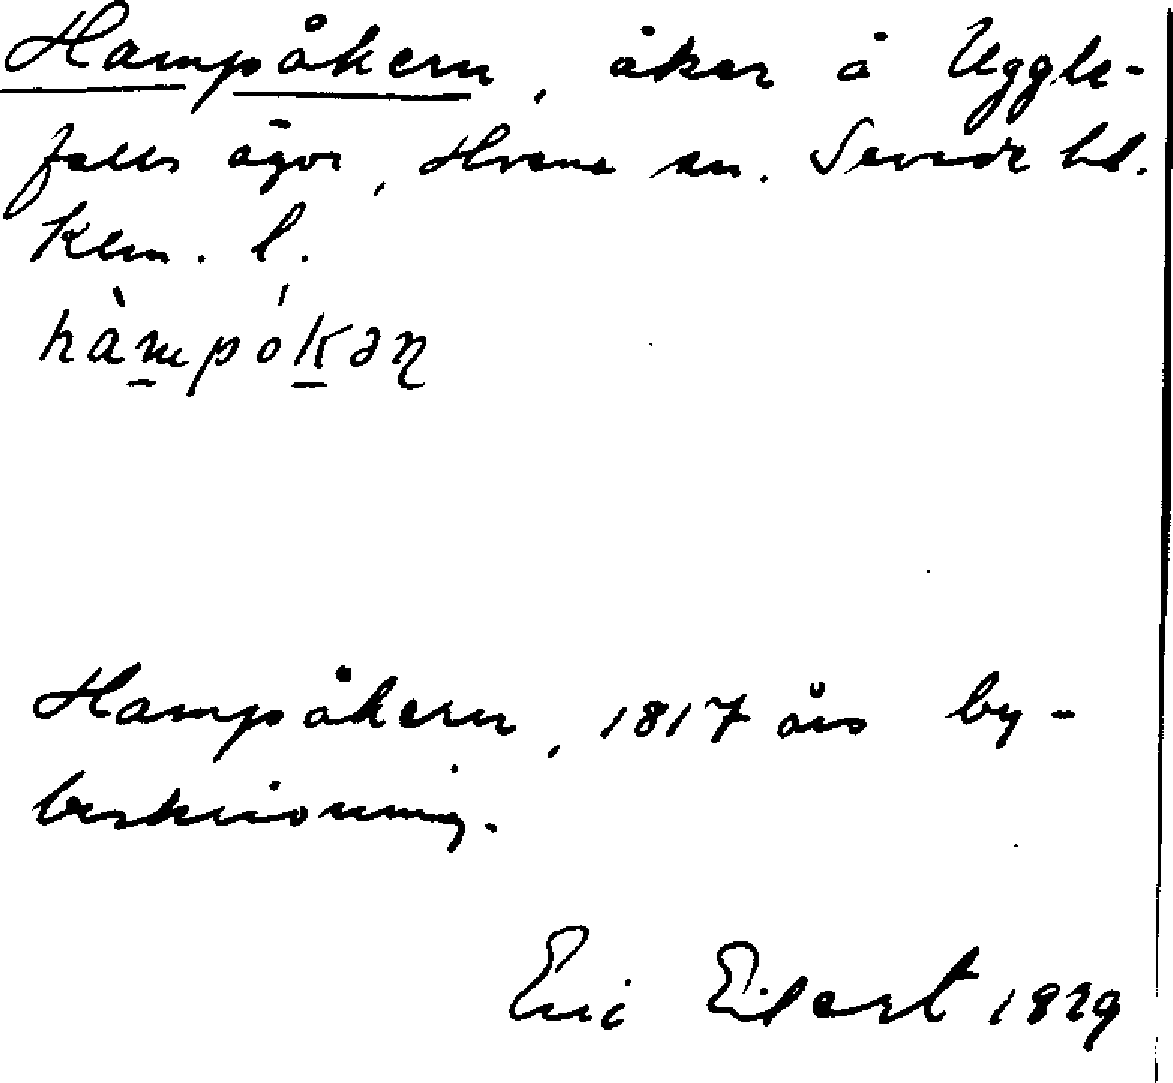 Hampåkern, åker å Uggle-
falls ägor, Hvena sn. Sevede hd.
Kalm. l.
hàmpókən
Hampåkern, 1817 års by-
beskrivning.
Eric Elfert 1929